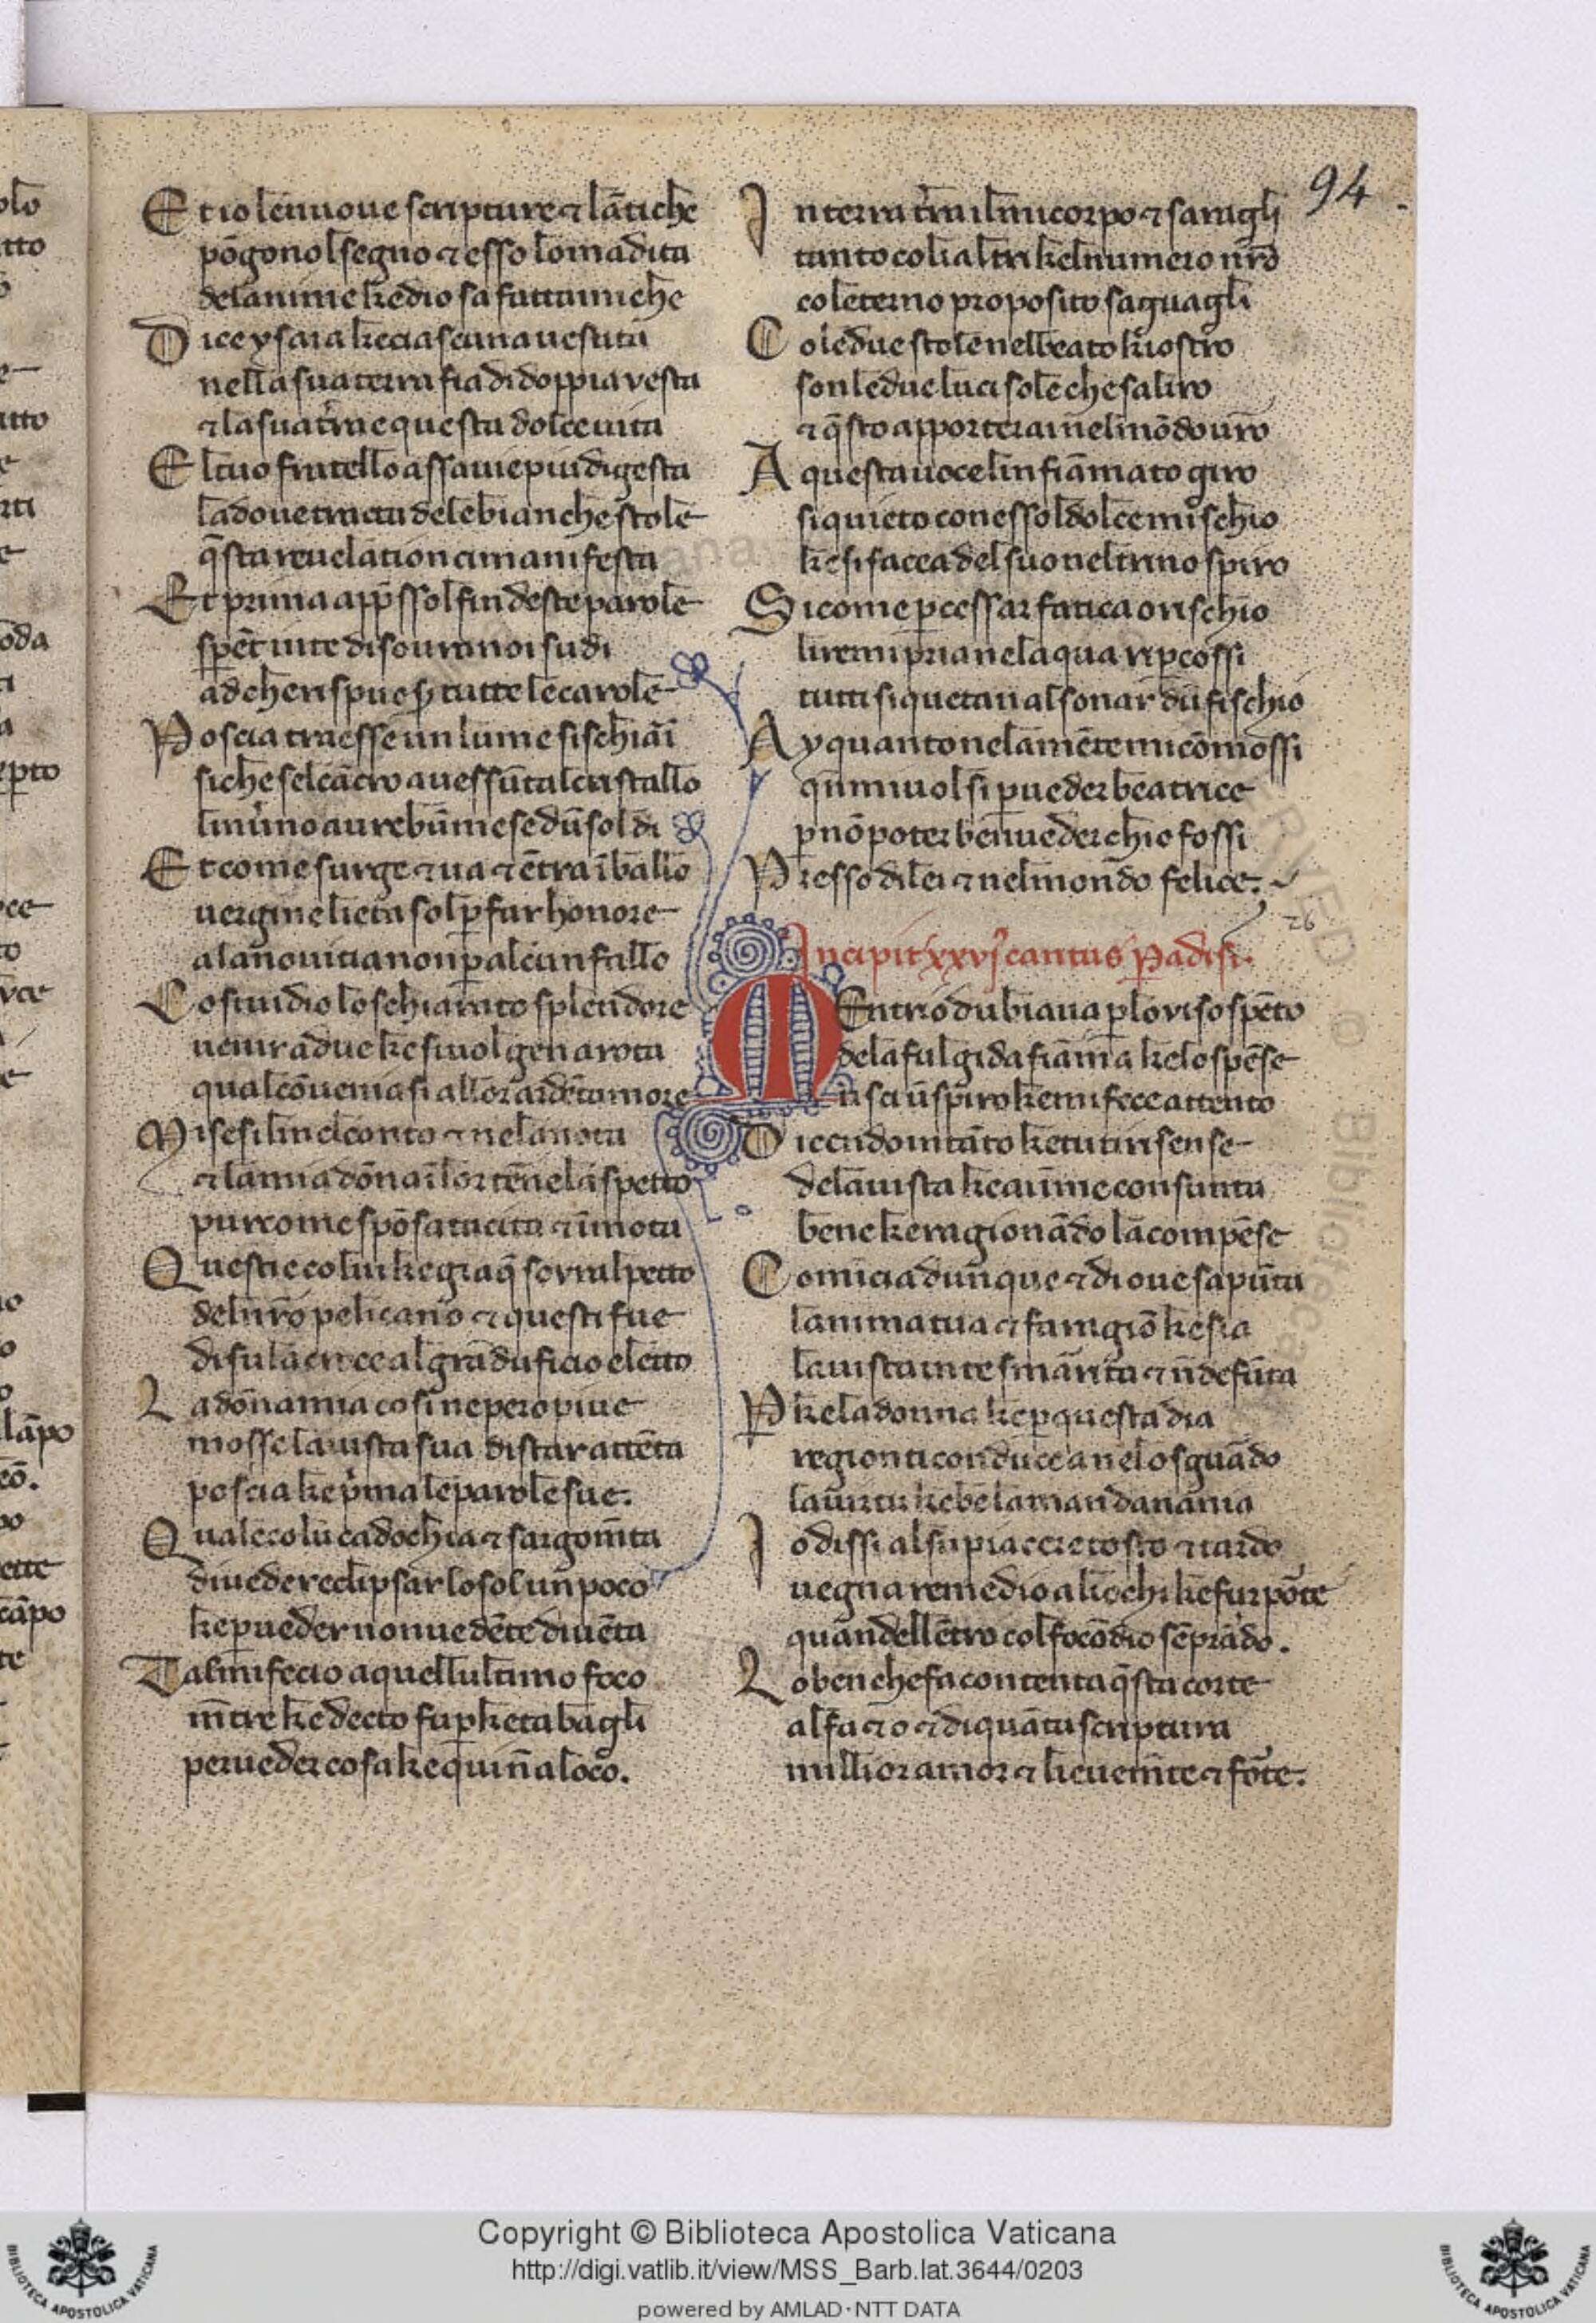 94
Et io le nuoue scripture ⁊ lātiche
pōgono lsegno ⁊ esso lo madita
de lanime ke dio sa fatta miche
Dice ysaia ke ciascuna uestita
nella sua terra fia di doppia vesta
⁊ la sua tr̄ra e questa dolce uita
El tuo fratello assai ue piu digesta
la doue tracta de le bianche stole
q̄sta reuelation ci manifesta
Et prima appssol fin deste parole
sperēt in te di soura noi sudi
a de che rispuos̄ tutte le carole
Poscia tra esse un lume si schiarì
si che sel cācro auessū tal cristallo
linu'no aurebū mese dū sol di
Et come surge ⁊ ua ⁊ ētra ī ballo
uergine lieta sol p̱ far honore
a la nouicia non p̱ alcun fallo
Cosi uidio lo schiarato splendore
uenir a due ke si uolgen a rota
qual cōueniasi al lor ardēt amore
Misesi li nel canto ⁊ ne la nota
⁊ la mia dōna ī lor tēne laspetto
pur come spōsa tacita ⁊ īmota
Questi e colui ke giaq̄ sovral petto
del nr̄o pelicano ⁊ questi fue
di su la croce al grāduficio eletto
La dōna mia cosi ne pero piue
mosse la uista sua di star attēta
poscia ke p'ma le parole sue.
Quale colu cadochia ⁊ sargom̄ta
di ueder eclipsar lo sol un poco
ke p̱ ueder non uedēte diuēta
Tal mi fecio a quellultimo foco
m̄tre ke decto fu p̱ke tabagli
per ueder cosa ke qui n̄a loco.
In terra e tr̄ra il mi corpo ⁊ saragli
tanto co li altri kel numero nr̄o
co leterno proposito saguagli
Co le due stole nel beato kiostro
son le due luci sole che saliro
⁊ q̄sto apporterai nel mōdo ur̄o
A questa uoce linfiāmato giro
si quieto con esso l dolce mischio
ke si facea del suon el trino spiro
Si come p̱ cessar fatica o rischio
li remi pria ne laqua rip̱cossi
tutti si quetan al sonar dū fischio
Ay quanto ne la mēte mi cōmossi
qn̄ mi uolsi p̱ ueder beatrice
p̱ nō poter ben uedere ch io fossi
Presso di lei ⁊ nel mondo felice.
26
Incipit xxvj cantus Padisi.
MEntrio dubiaua p̱ lo viso spēto
de la fulgida fiāma ke lo spēse
nusci ū spiro ke mi fece attento
Dicendo intāto ke tu ti risense
de la uista ke ai ī me consunta
bene ke ragionādo la compēse
Comicia dunque ⁊ di oue sapūta
lanima tua ⁊ fa ragiō ke sia
la uista in te smarrita ⁊ n̄ defūta
P̱ke la donna ke p̱ questa dia
region ti conduce a ne lo sguādo
la uirtu kebe la man danania
Io dissi al su piacere tosto ⁊ tardo
uegna remedio a li ochi ke fur porte
quandellētro col foco ōdio sēprardo.
Lo ben che fa contenta q̄sta corte
alfa ⁊ o ⁊ di quāta scriptura
mi llior amor ⁊ lieuemēte ⁊ forte.
Copyright © Biblioteca Apostolica Vaticana
http://digi.vatlib.it/view/MSS_Barb.lat.3644/0203
powered by AMLAD·NTT DATA
BIBLIOTECA APOSTOLICA VATICANA
BIBLIOTECA APOSTOLICA VATICANA